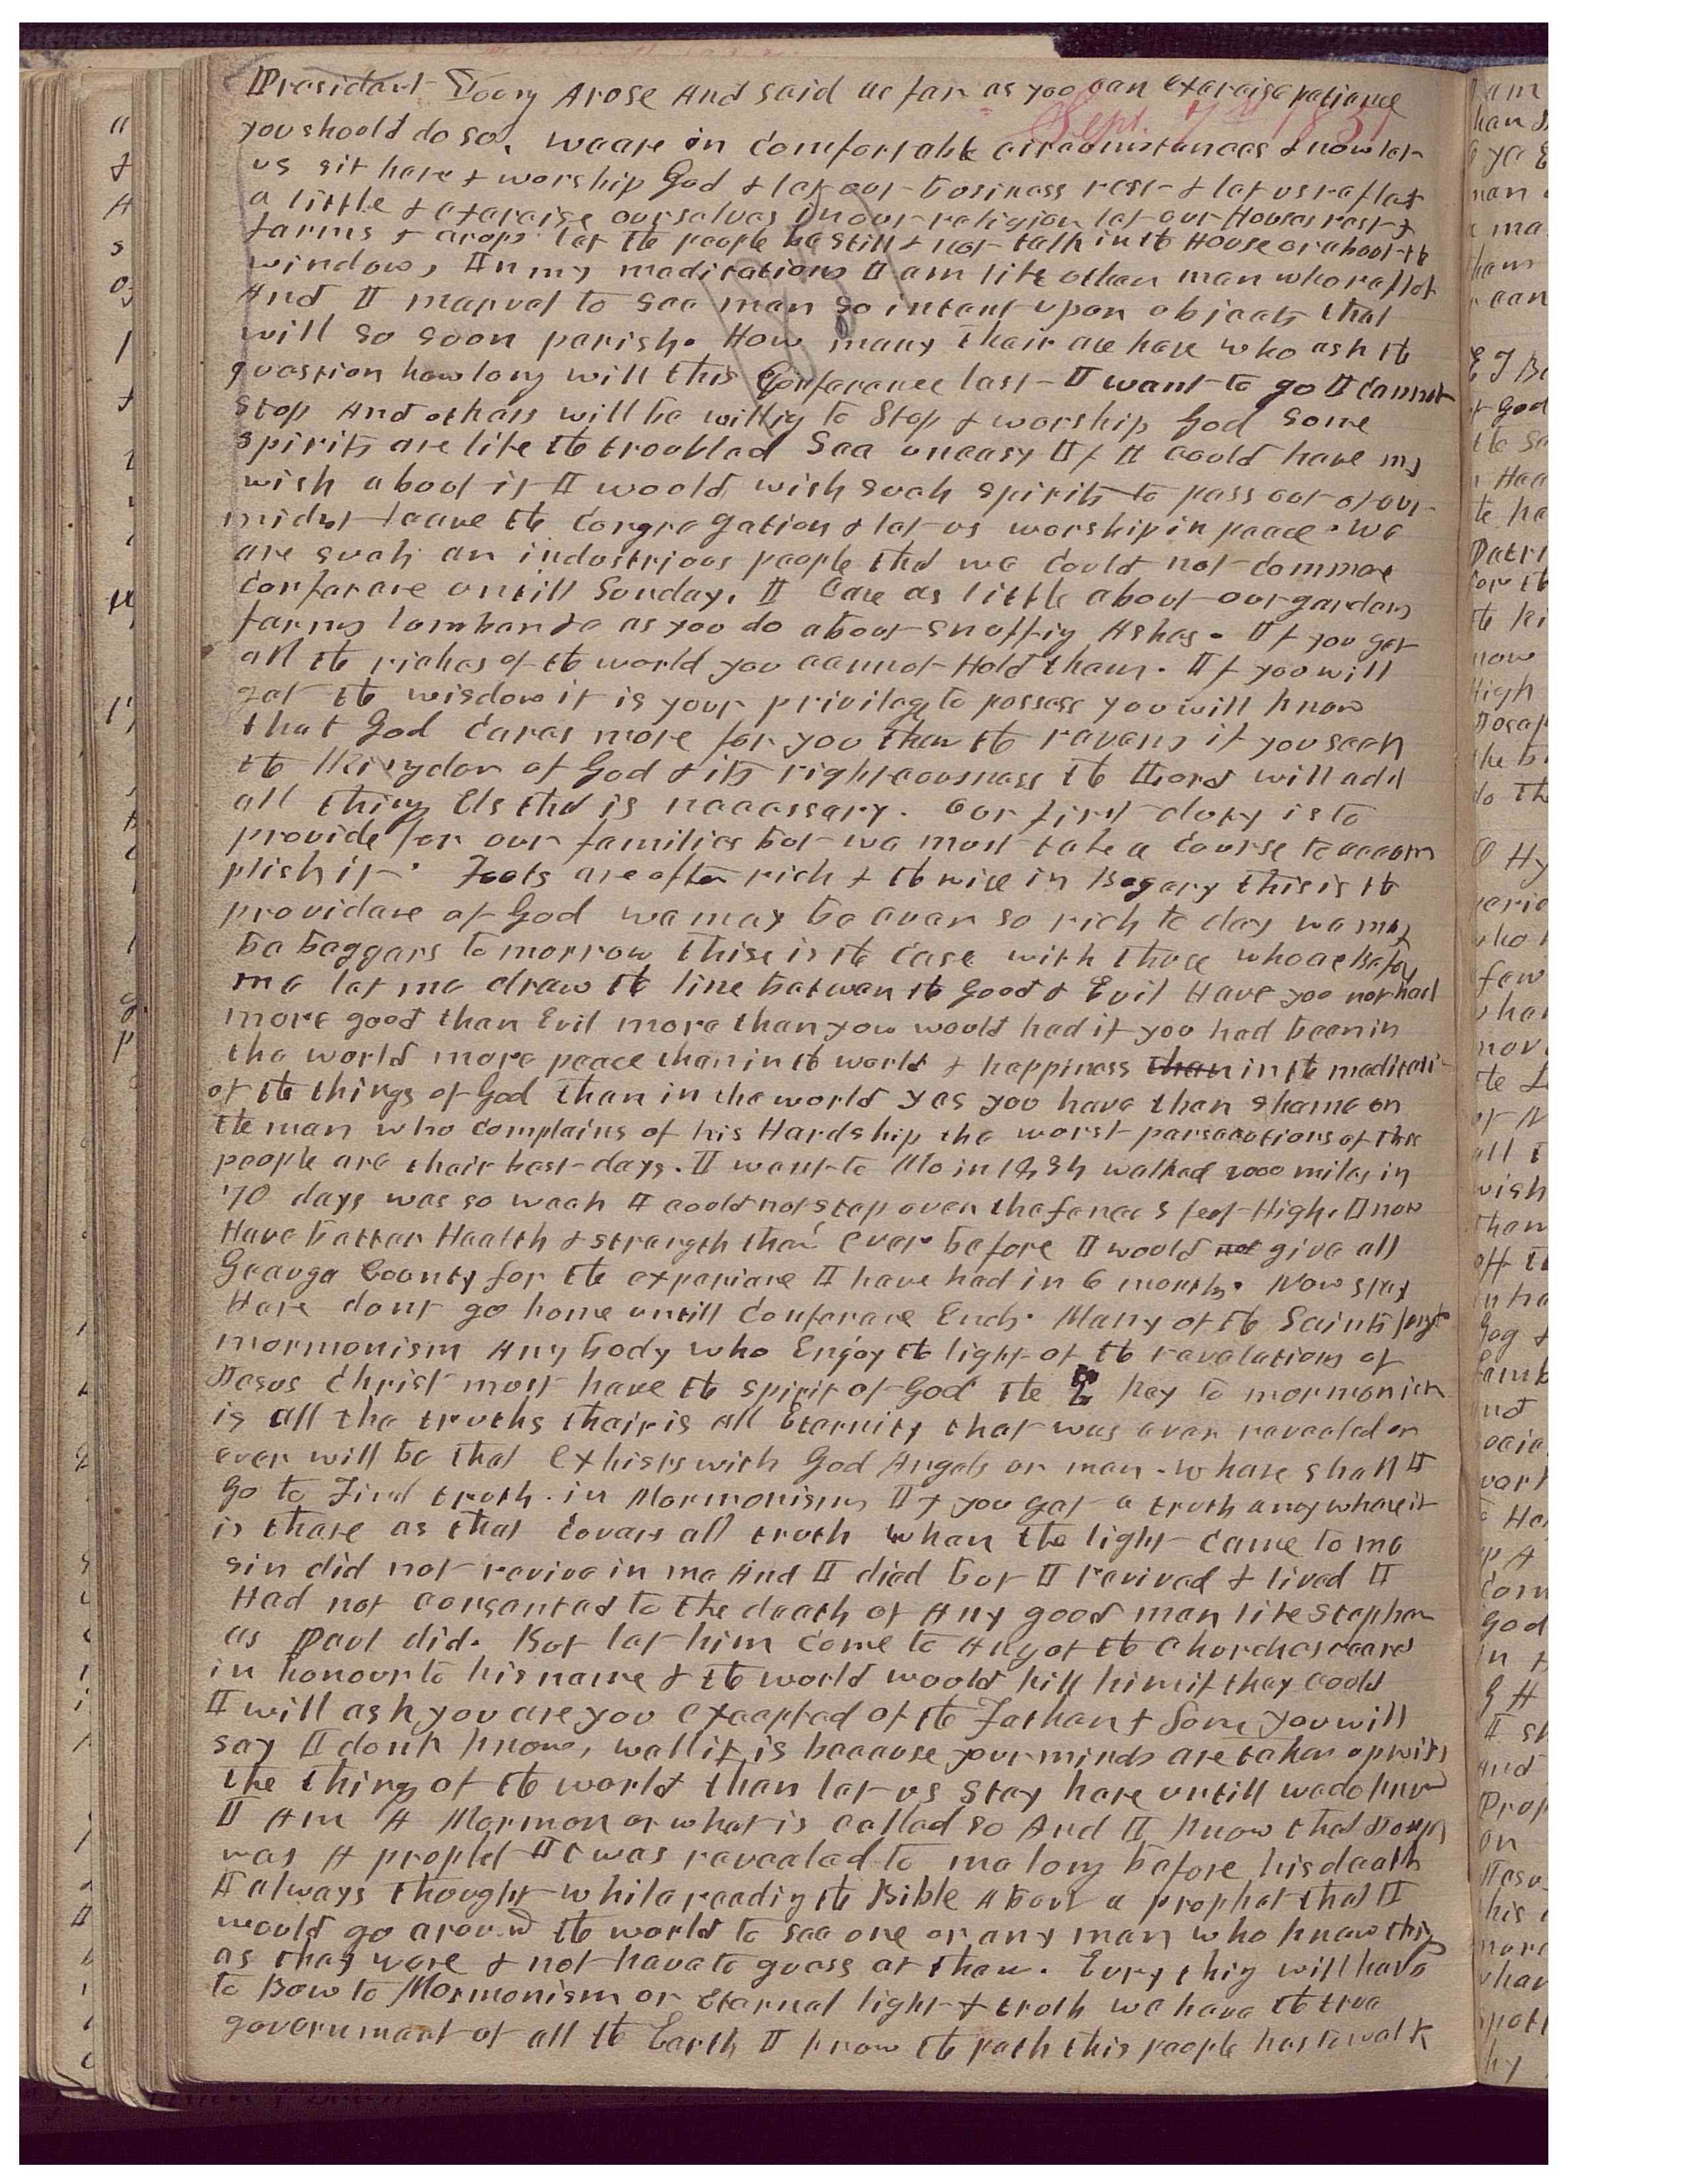 President Young Arose And said as far as you can exercise patience
Sept. 7th 1851
you should do so, we are in Comfortable circumstances & now let
us sit here & worship God & let our business rest & let us reflect
a little & exercise ourselves in our religion let our Houses rest &
farms & crops let the people be still & not talk in the House or about the
windows, In my meditations I am like other men who reflect
And I marvel to see men so intent upon objects that
will so soon perish. How many their are here who ask the
question how long will this Conference last I want to go I cannot
Stop And others will be willig to Stop & worship God Some
spirits are like the troubled Sea uneasy If I could have my
wish about it I would wish such spirits to pass out of our
midst leave the Congregation & let us worship in peace. We
are such an industrious people that we Could not Commence
Conference untill Sunday. I Care as little about our gardens
farms lumber &c as you do about snuffig Ashes. If you get
all the riches of the world you cannot Hold them. If you will
get the wisdom it is your privilege to possess you will know
that God Cares more for you than the ravens if you seek
the Kingdom of God & its righteousness the Lord will add
all things Els that is necessary. Our first duty is to
provide for our families but we must take a Course to accom
plish it. Fools are often rich & the wise in Begary this is the
providence of God we may be ever so rich to day we may
be beggars to morrow this is the Case with those who are before
me let me draw the line between the good & Evil Have you not had
more good than Evil more than you would had if you had been in
the world more peace than in the world & happiness than in the meditati
of the things of God than in the world yes you have then shame on
the man who Complains of his Hardship the worst persecutions of this
people are their best days. I went to Mo in 1834 walked 2000 miles in
70 days was so weak I could not step over the fence 3 feet High. I now
Have better Health & strength than ever before I would not give all
Geauga County for the experiance I have had in 6 months. Now stay
Here dont go home untill Conference Ends. Many of the Saints forget
mormonism Any body who Enjoy the light of the revelations of
Jesus Christ must have the spirit of God the key to mormonism
is all the truths their is All Eternity that was ever revealed or
ever will be that Exhists with God Angels or man. Where shall I
Go to Find truth. in Mormonism If you get a truth any where it
is there as that Covers all truth when the light Came to me
sin did not revive in me And I died but I revived & lived I
Had not consented to the death of Any good man like Stephen
as Paul did. But let him Come to Any of the Churches reared
in honour to his name & the world would kill him if they could
I will ask you are you Excepted of the Father & Son you will
say I dont know, well it is because your minds are taken up with
the things of the world then let us stay here untill we do know
I Am A Mormon or what is called so And I know that Joseph
was A prophet It was revealed to me long before his death
I always thought while readig the Bible About a prophet that I
would go around the world to see one or any man who knew things
as they were & not have to guess at them. Every thig will have
to Bow to Mormonism or Eternal light & truth we have the true
government of all the Earth I know the path this people has to walk